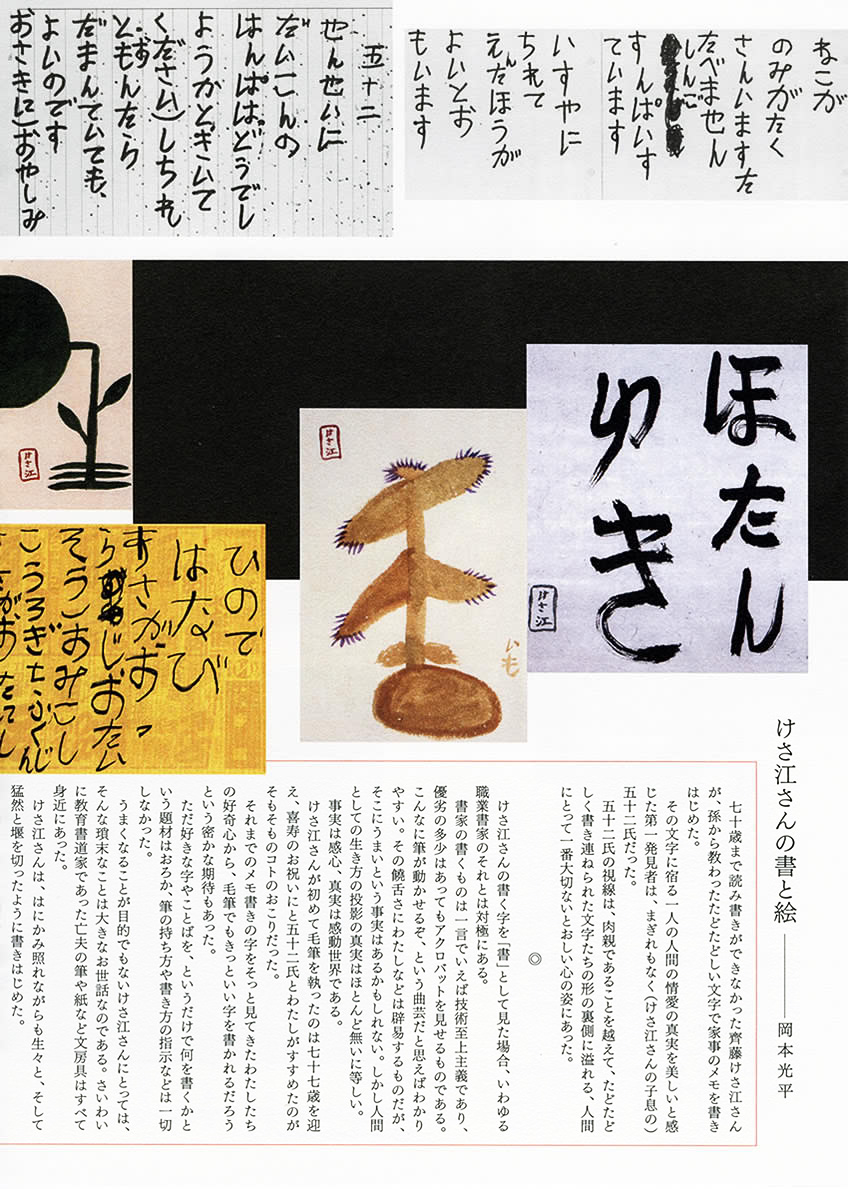 ねこが
のみがたく
さんいますた
たべません
しんご
すんぱいす
ています
いすやに
ちれて
えんだほうが
よいとお
もいます
五十二
せんせいに
だいこんの
はんぱはどうでし
ようかときいて
ください)しちれ
ともんたら
だまんていても、
よいのです
おさきに)おやしみ
ほたん
ゆき
けさ江
いも
けさ江
けさ江
ひので
はなび
あさがお
らじおたい
そう)おみこし
こうろぎ
けさ江さんの書と絵――岡本光平
七十歳まで読み書きができなかった齊藤けさ江さん
が、孫から教わったたどたどしい文字で家事のメモを書き
はじめた。
その文字に宿る一人の人間の情愛の真実を美しいと感
じた第一発見者は、まぎれもなく(けさ江さんの子息の)
五十二氏だった。
五十二氏の視線は、肉親であることを越えて、たどたど
しく書き連ねられた文字たちの形の裏側に溢れる、人間
にとって一番大切ないとおしい心の姿にあった。
◎
けさ江さんの書く字を「書」として見た場合、いわゆる
職業書家のそれとは対極にある。
書家の書くものは一言でいえば技術至上主義であり、
優劣の多少はあってもアクロバットを見せるものである。
こんなに筆が動かせるぞ、という曲芸だと思えばわかり
やすい。その饒舌さにわたしなどは辟易するものだが、
そこにうまいという事実はあるかもしれない。しかし人間
としての生き方の投影の真実はほとんど無いに等しい。
事実は感心、真実は感動世界である。
けさ江さんが初めて毛筆を執ったのは七十七歳を迎
え、喜寿のお祝いにと五十二氏とわたしがすすめたのが
そもそものコトのおこりだった。
それまでのメモ書きの字をそっと見てきたわたしたち
の好奇心から、毛筆でもきっといい字を書かれるだろう
という密かな期待もあった。
ただ好きな字やことばを、というだけで何を書くかと
いう題材はおろか、筆の持ち方や書き方の指示などは一切
しなかった。
うまくなることが目的でもないけさ江さんにとっては、
そんな瑣末なことは大きなお世話なのである。さいわい
に教育書道家であった亡夫の筆や紙など文房具はすべて
身近にあった。
けさ江さんは、はにかみ照れながらも生々と、そして
猛然と堰を切ったように書きはじめた。